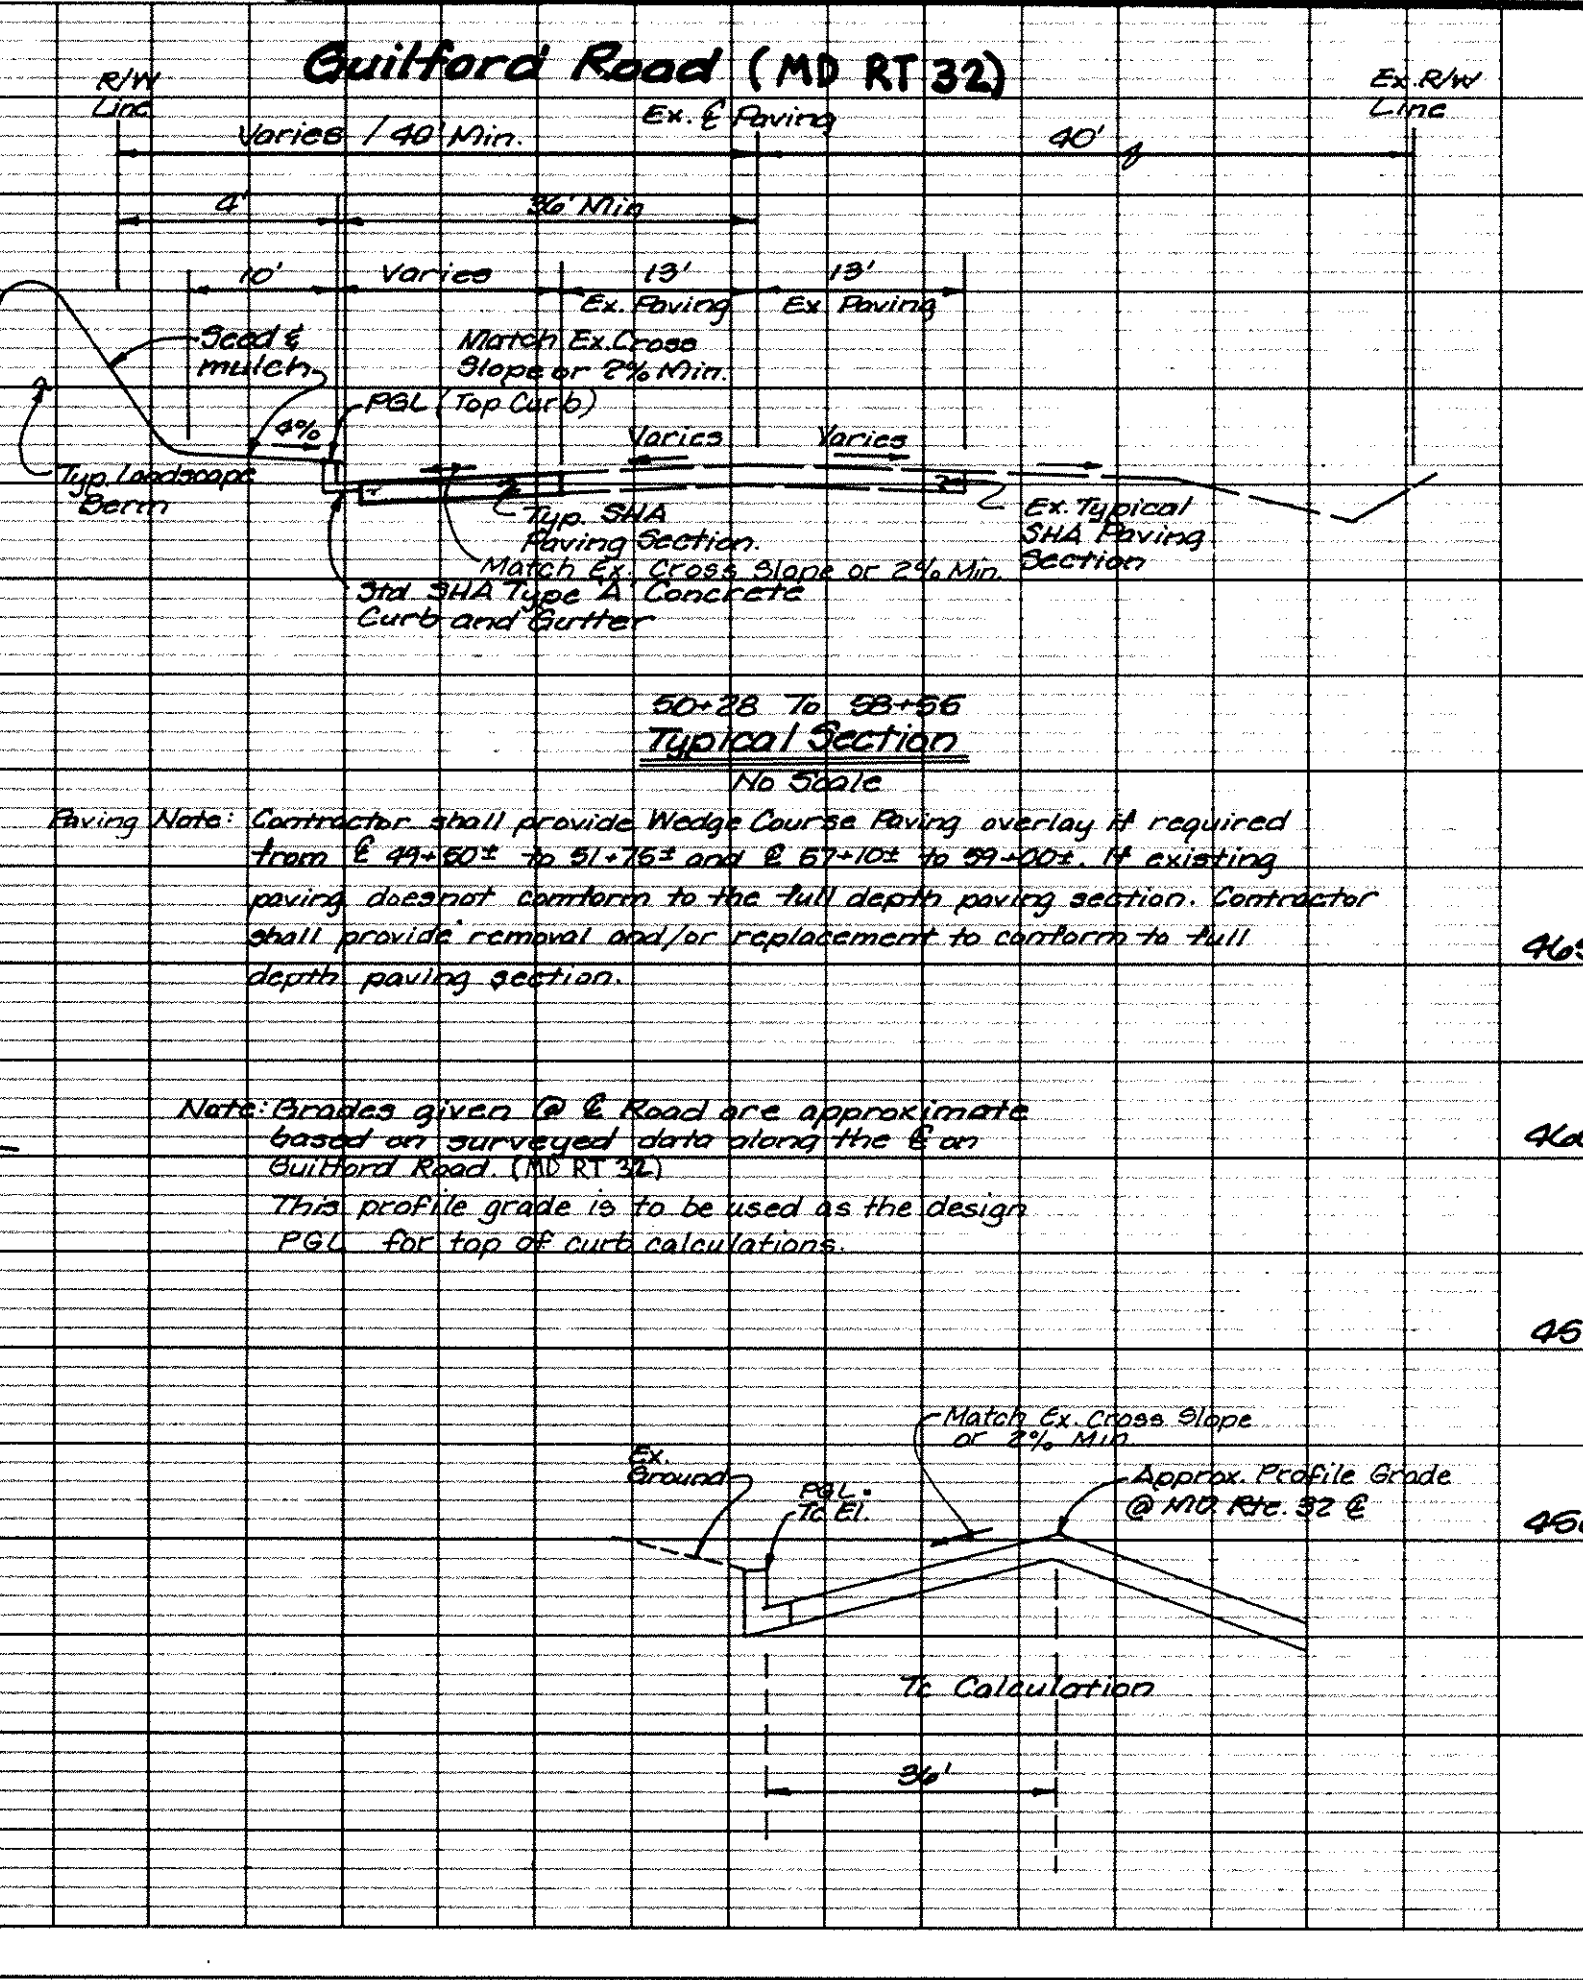 Guilford Road (MD RT 32)
R/W
Line
Ex. ℄ Paving
Ex. R/W
Line
Varies / 40' Min.
40'
4'
36' Min
10'
Varies
13'
Ex. Paving
13'
Ex. Paving
Seed &
mulch
Match Ex. Cross
Slope or 2% Min.
PGL (Top Curb)
4%
Varies
Varies
Typ. Landscape
Berm
Typ. SHA
Paving Section.
Ex. Typical
SHA Paving
Section
Match Ex. Cross Slope or 2% Min.
Std SHA Type 'A' Concrete
Curb and Gutter
50+28 To 58+56
Typical Section
No Scale
Paving Note: Contractor shall provide Wedge Course Paving overlay if required
from ℄ 49+50± to 51+75± and ℄ 57+10± to 59+00±. If existing
paving doesnot comform to the full depth paving section. Contractor
shall provide removal and/or replacement to conform to full
depth paving section.
465
Note: Grades given @ ℄ Road are approximate
based on surveyed data along the ℄ on
Guilford Road. (MD RT 32)
This profile grade is to be used as the design
PGL for top of curb calculations.
46
45
45
Match Ex. Cross Slope
or 2% Min.
Ex.
Ground
PGL =
Tc El.
Approx. Profile Grade
@ MD. Rte. 32 ℄
Tc Calculation
36'